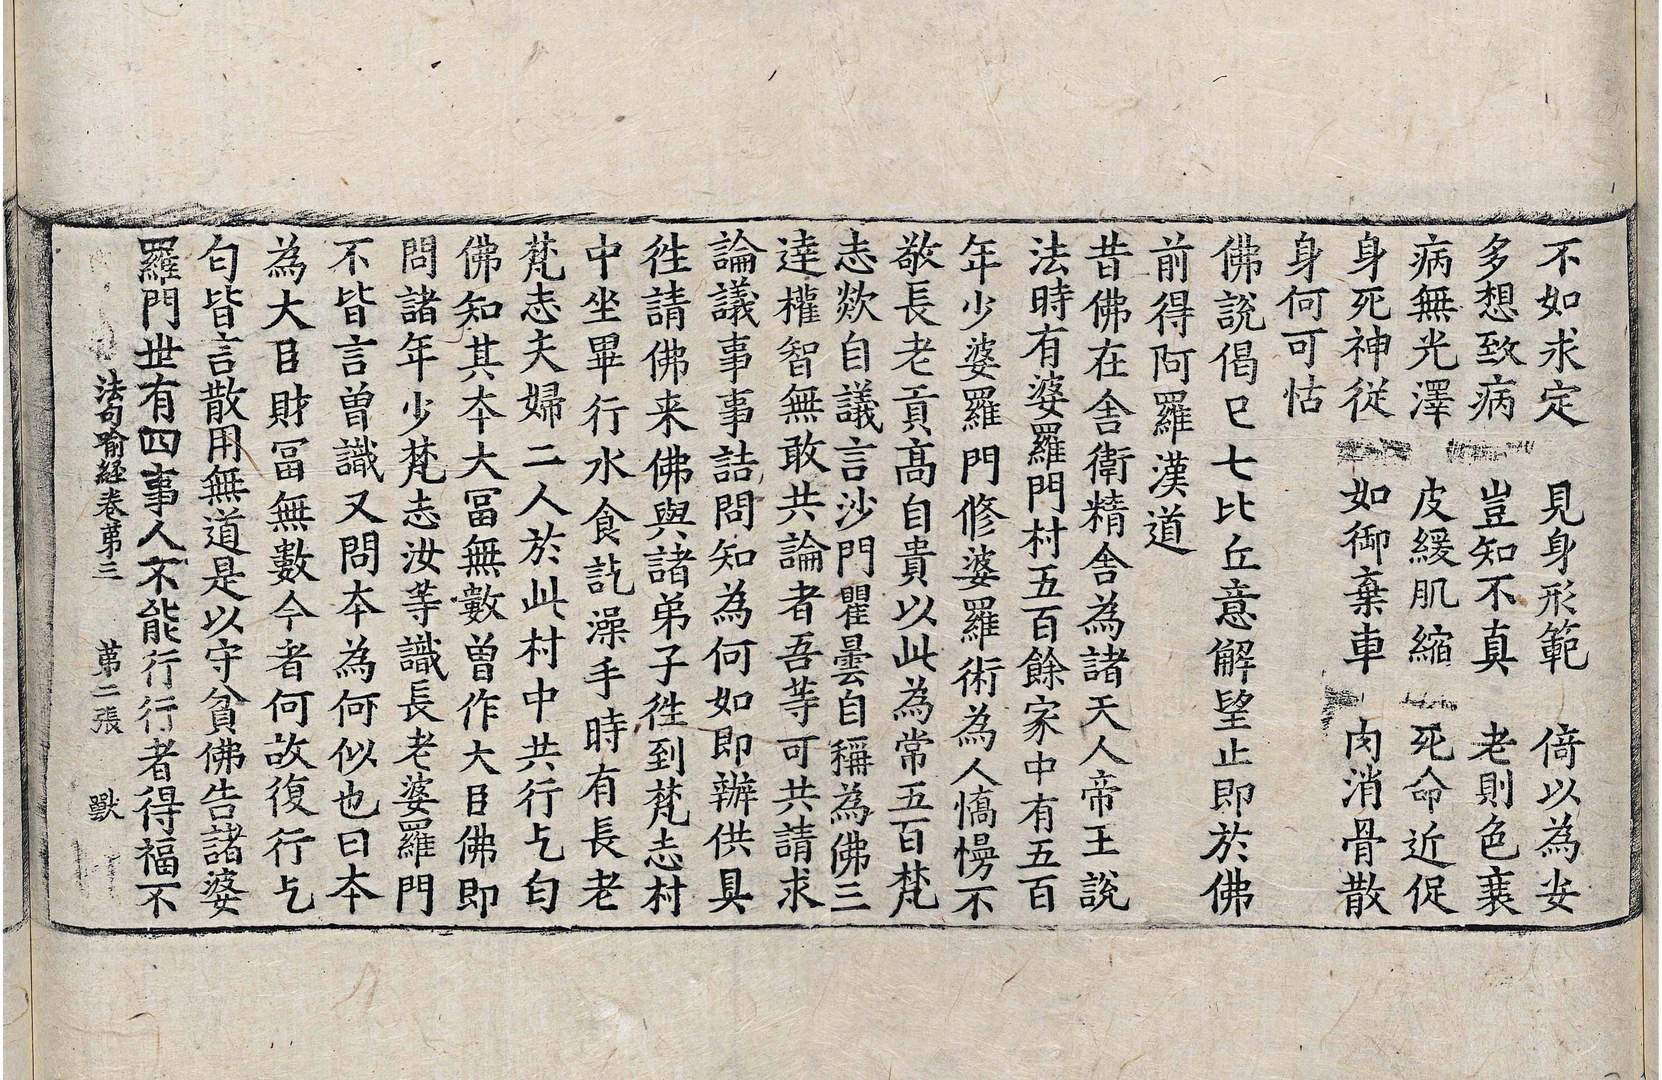 不如求定　見身形範　倚以為安
多想致病　豈知不真　老則色衰
病無光澤　皮緩肌縮　死命近促
身死神從　如御棄車　肉消骨散
身何可怙
佛說偈已七比丘意解望止即於佛
前得阿羅漢道
昔佛在舍衛精舍為諸天人帝王說
法時有婆羅門村五百餘家中有五百
年少婆羅門脩婆羅術為人憍慢不
敬長老貢高自貴以此為常五百梵
志欻自議言沙門瞿曇自稱為佛三
達權智無敢共論者吾等可共請求
論議事事詰問知為何如即辦供具
徃請佛来佛與諸弟子徃到梵志村
中坐畢行水食訖澡手時有長老
梵志夫婦二人於此村中共行乞匃
佛知其夲大冨無數曽作大臣佛即
問諸年少梵志汝等識長老婆羅門
不皆言曽識又問夲為何似也曰夲
為大臣財冨無數今者何故復行乞
匃皆言散用無道是以守貧佛告諸婆
羅門世有四事人不能行行者得福不
法句喻經卷苐三　苐二張　獸